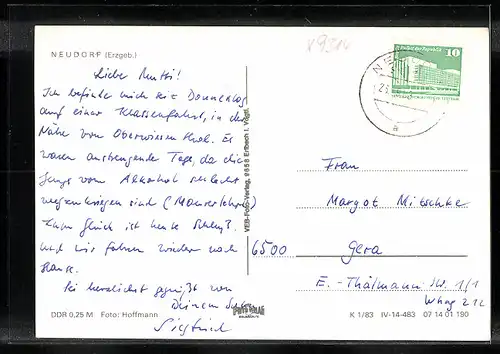 V9314
NEUDORF (Erzgeb.)
Liebe Mutti!
Ich befinde mich seit Donnerstag
auf einer Klassenfahrt, in der
Nähe von Oberwiesenthal. Es
waren anstrengende Tage, da die
Jungs vom Alkohol schlecht
wegzukriegen sind (Maurerlehrl.)
Zum Glück ist heute Schluß.
und wir fahren wieder nach
Hause.
Sei herzlichst gegrüßt von
Deinem Sohn
Siegfried
DDR 0,25 M Foto: Hoffmann
VEB-Foto-Verlag, 9658 Erlbach i. Vogtl.
10
Frau
Margot Mitschke
6500 Gera
E.-Thälmann Str. 1/1
Whng 212
K 1/83 IV-14-483 07 14 01 190